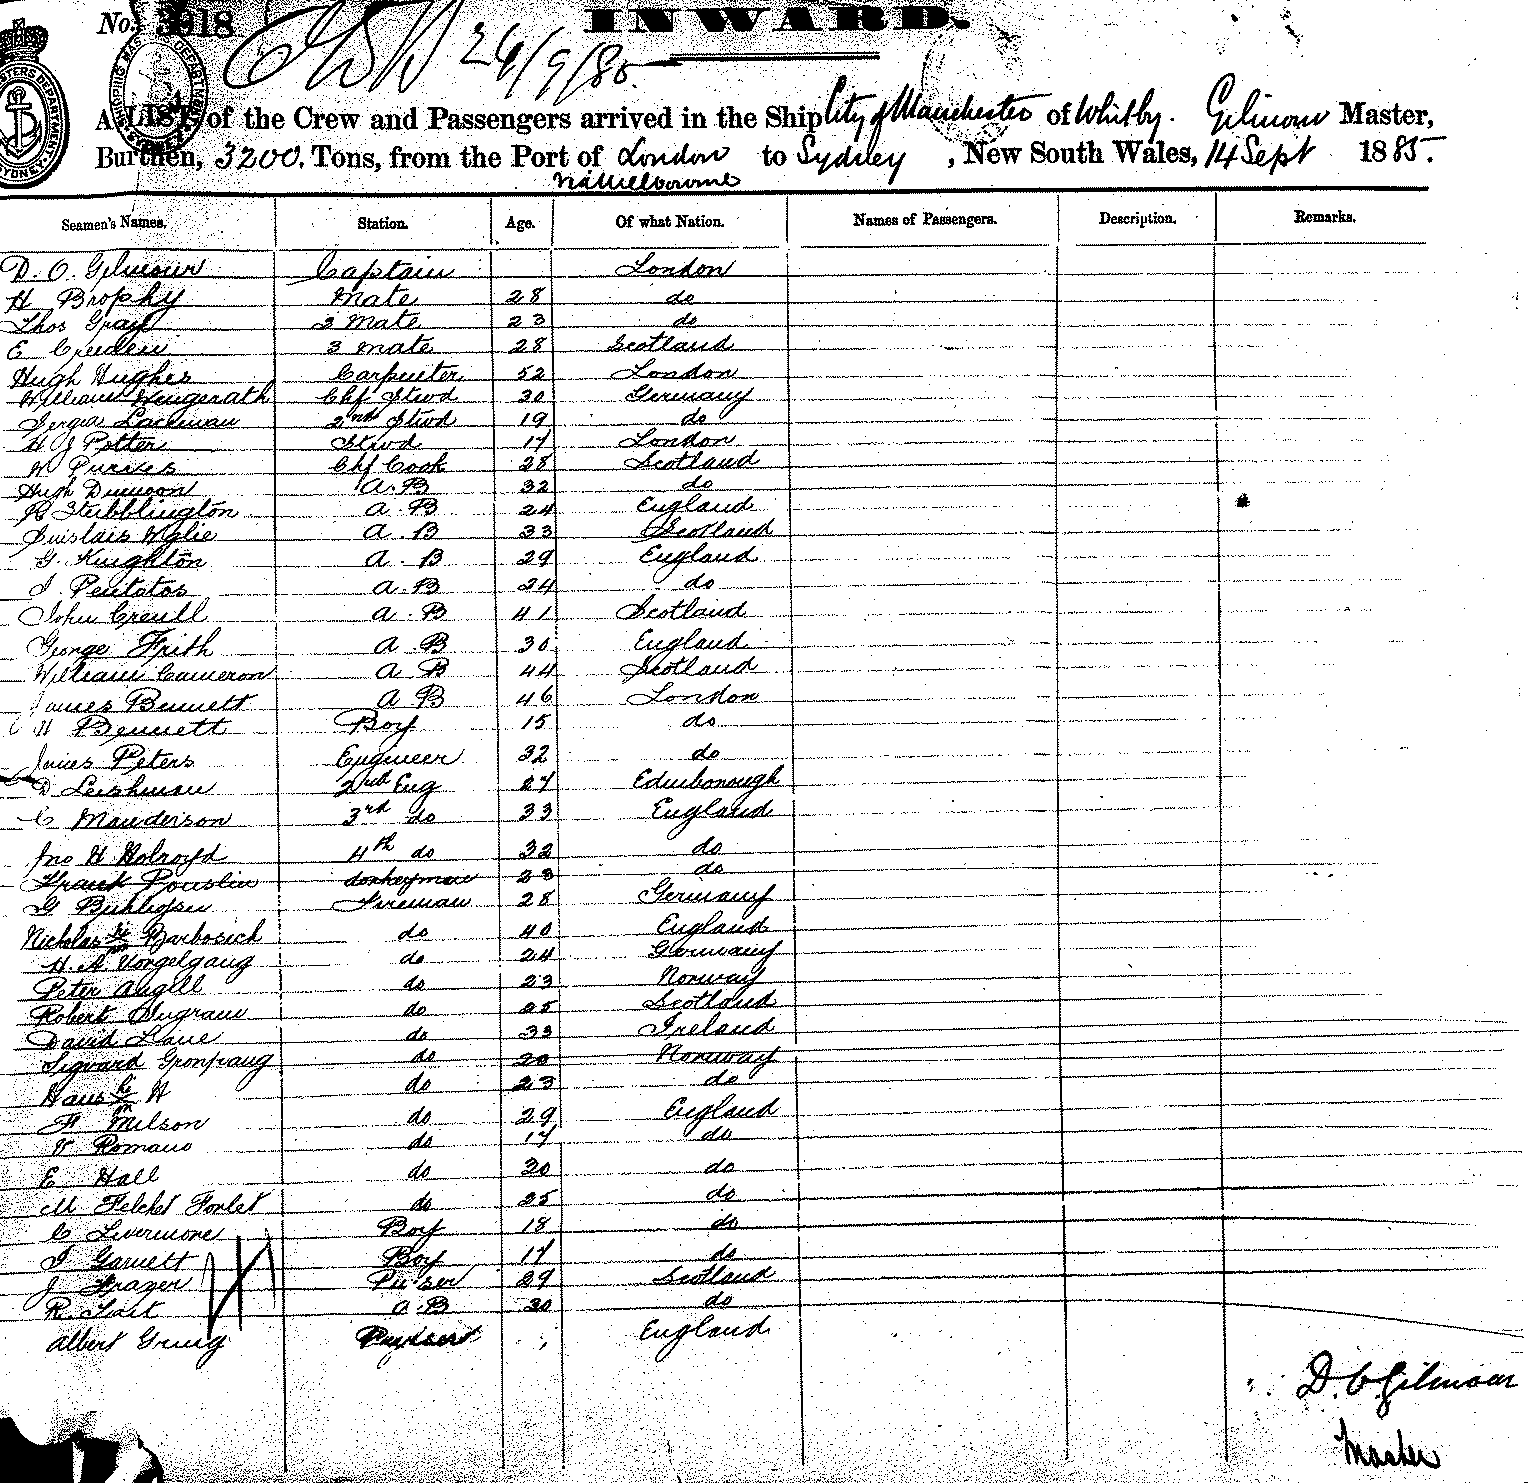 No. 3918 INWARD.
26/9/85
A LIST of the Crew and Passengers arrived in the Ship City of Manchester of Whitby. Gilmour Master,
Burthen, 3200. Tons, from the Port of London to Sydney, New South Wales, 14 Sept 1885.
via Melbourne
Seamen's Names. Station. Age. Of what Nation. Names of Passengers. Description. Remarks.
D. C. Gilmour Captain London
H Brophy Mate 28 do
Thos Gray 2 Mate 23 do
E Cruden 3 mate 28 Scotland
Hugh Hughes Carpenter 52 London
William Chf Stwd 30 Germany
Lachman 2nd Stwd 19 do
H J Potter Stwd 17 London
W Purves Chf Cook 28 Scotland
Hugh A.B 32 do
Stubblington A.B 24 England
Wylie A.B 33 Scotland
G. Knighton A.B 29 England
A.B 24 do
John A.B 41 Scotland
George Frith A B 30 England
William Cameron A B 44 Scotland
James Bennett A B 46 London
H Bennett Boy 15 do
James Peters Engineer 32 do
D Leishman 2nd Eng 27 Edinborough
C Manderson 3rd do 33 England
Jno H Holroyd 4th do 32 do
Frank donkeyman 23 do
G Fireman 28 Germany
Nicholas Barbosich do 40 England
H. A. Vorgelgang do 24 Germany
Peter Augell do 23 Norway
Robert do 25 Scotland
David Lane do 33 Ireland
Sigvard do 20 Norway
Hans H do 23 do
F Milson do 29 England
V Romano do 17 do
E Hall do 20 do
M do 25 do
C Livermore Boy 18 do
Garnett Boy 17 do
J Frazer Purser 29 Scotland
R. Tait A.B 30 do
Albert England
D. C. Gilmour
Master